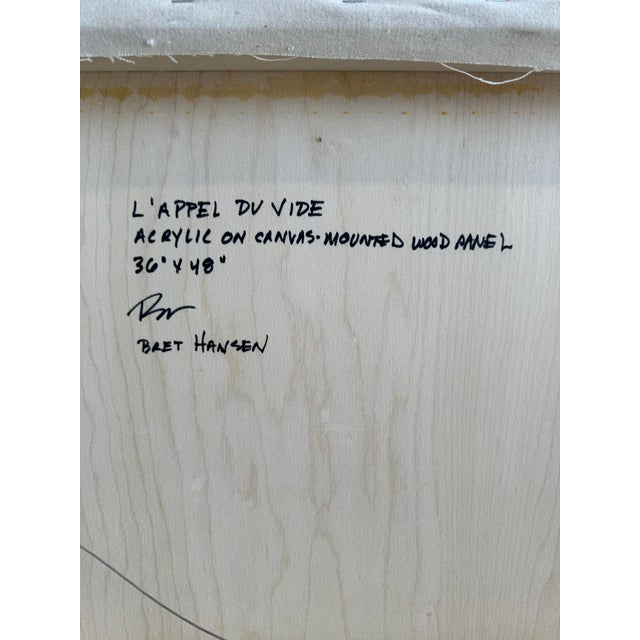 L'APPEL DU VIDE
ACRYLIC ON CANVAS-MOUNTED WOOD PANEL
36" X 48"
BRET HANSEN